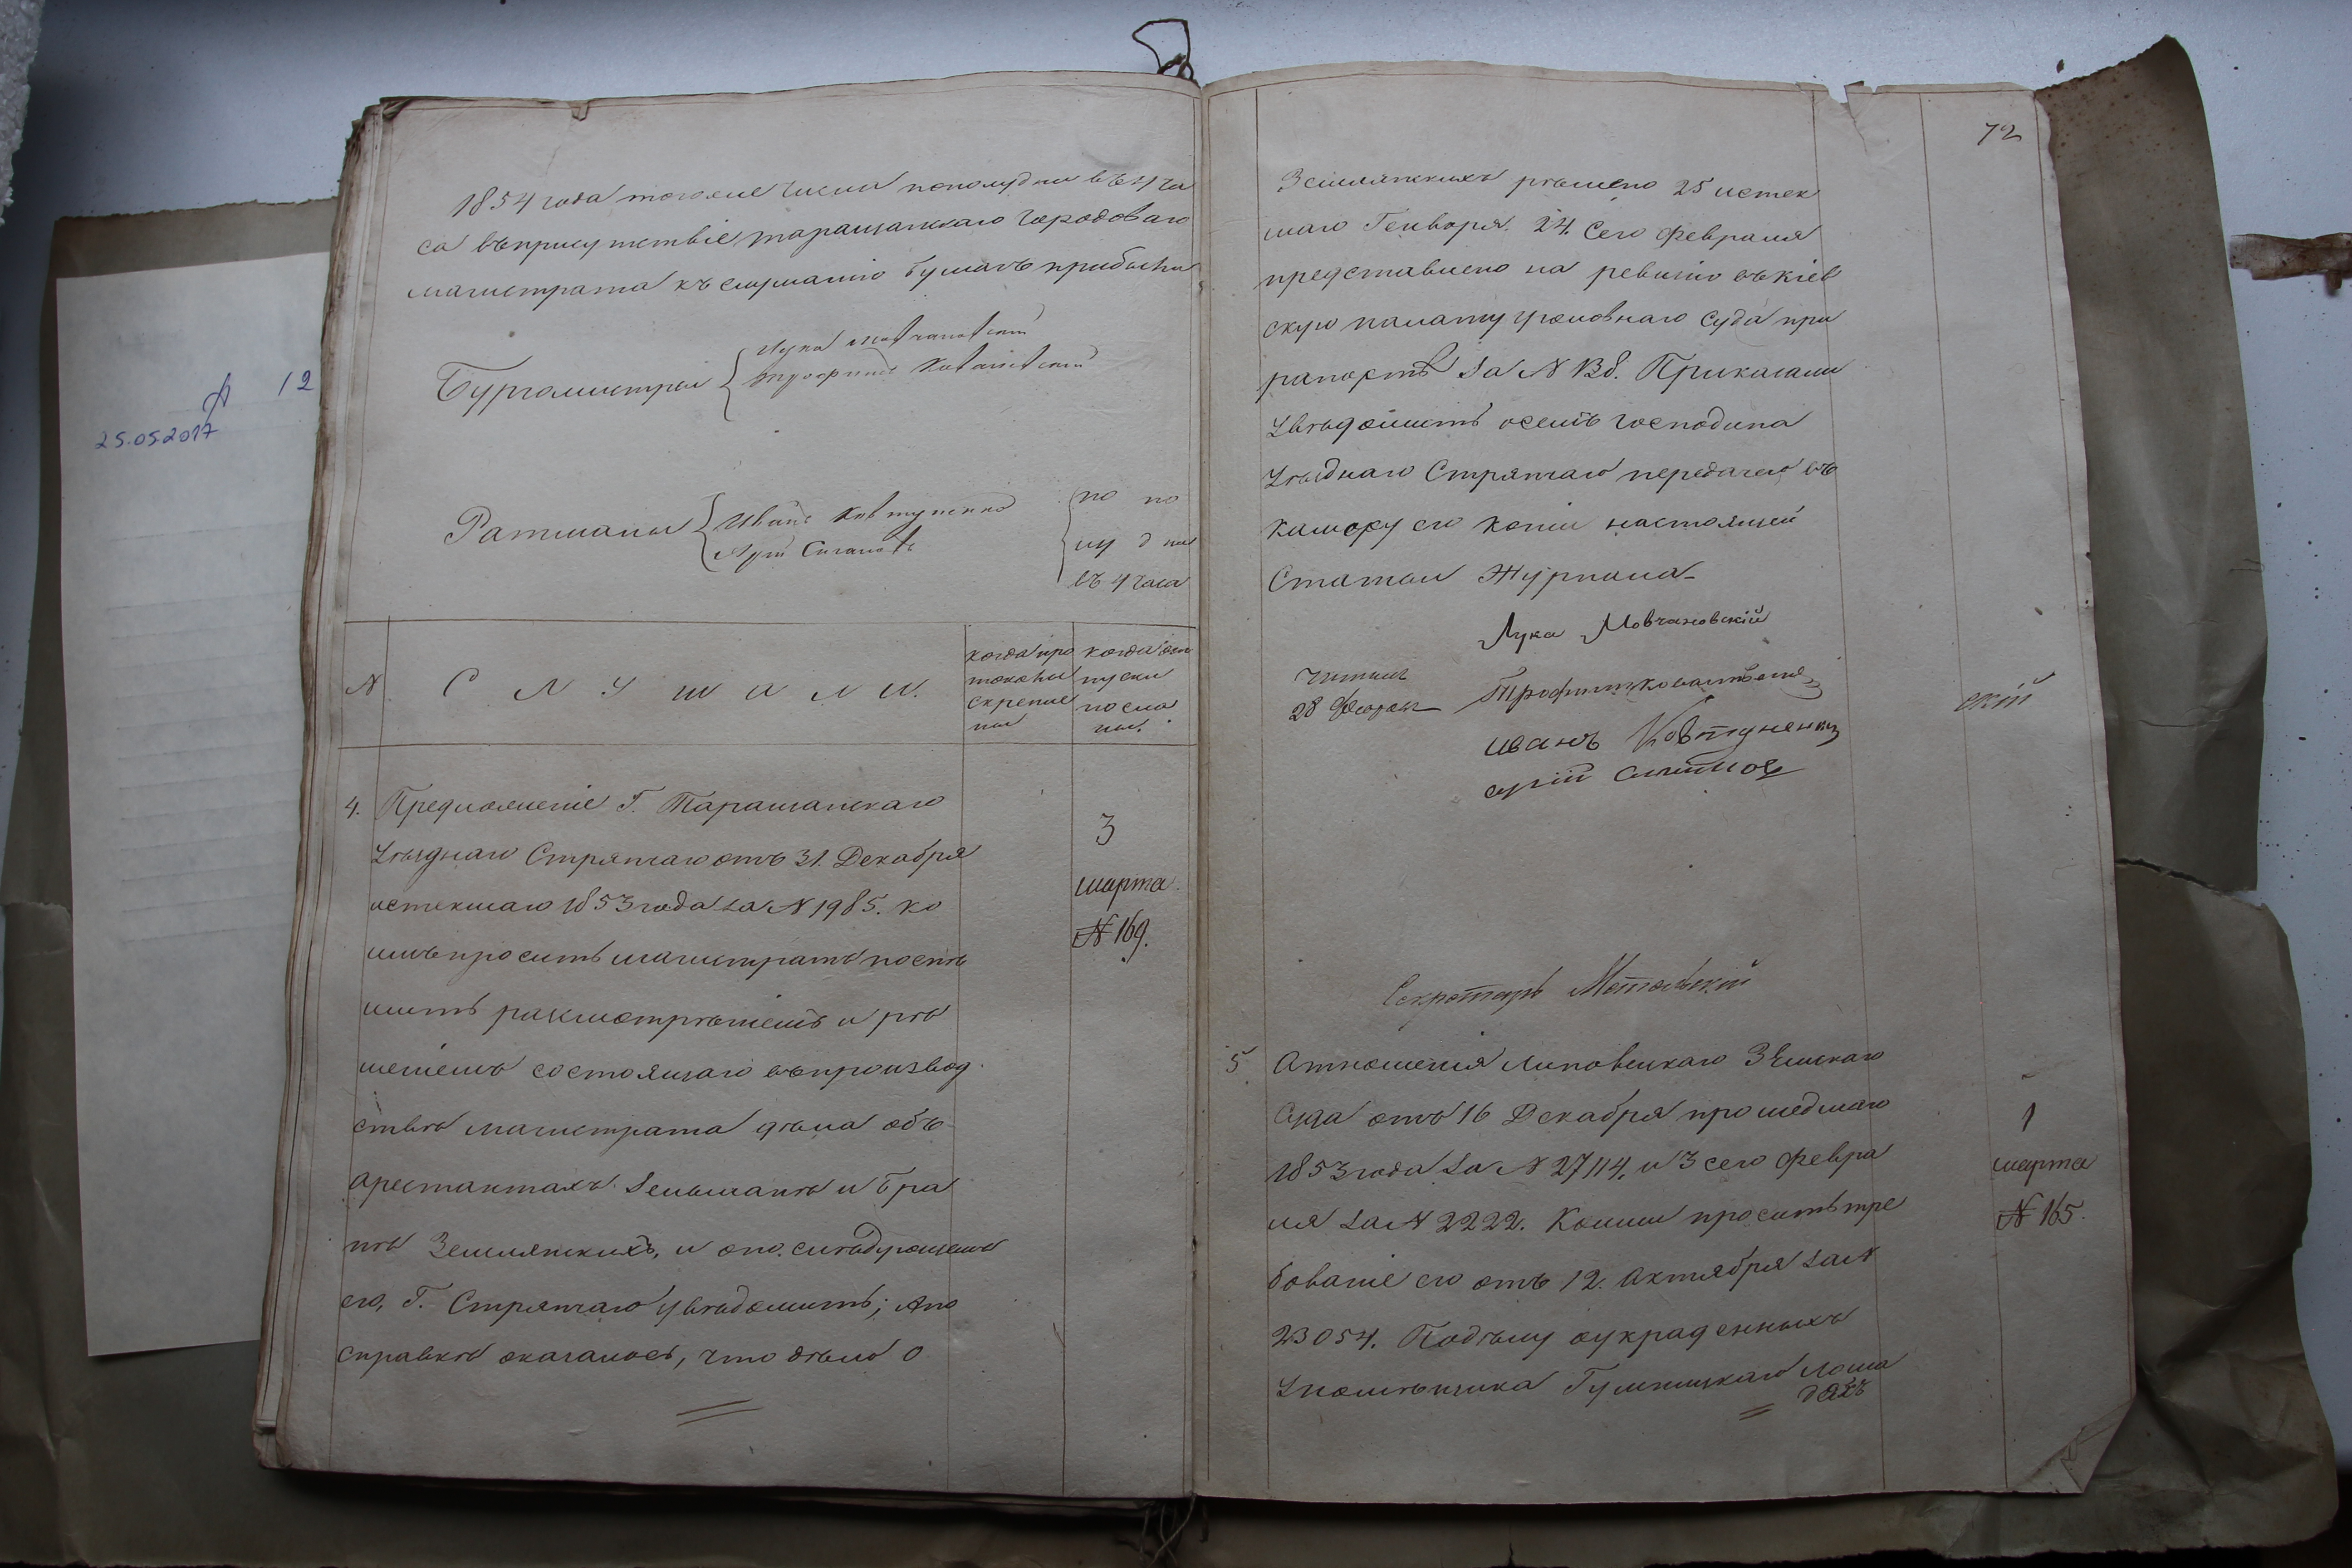 1854 года тогоже числа пополудни въ 4 ча
са въ присутствіе таращанскаго городоваго
магистрата къ слушанію бумагъ прибыли
Бургомистры
Лука Мовчановскій
Трофимъ Ковалевскій
Ратманы
Иванъ Ковтуненко
по по
лу дни
въ 4 часа
№
С Л У Ш А Л И.
когда про
токолы
скрепле
ны
когда от
пуски
посла
ны.
4. Предложеніе Г. Таращанскаго
Уѣзднаго Стряпчаго отъ 31. Декабря
истекшаго 1853 года за № 1985. ко
имъ проситъ магистратъ поспѣ
шить разсмотрѣніемъ и рѣ
шеніемъ состоящаго въ производ
ствѣ магистрата дѣла объ
арестантахъ Зельманѣ и Бра
нѣ Землянскихъ, и опо слѣдующемъ
его, Г. Стряпчаго увѣдомить; А по
справкѣ оказалось, что дѣло о
3
марта
№ 169.
72
Землянскихъ рѣшено 25 истек
шаго Генваря. 24. Сего февраля
представлено на ревизію въ кіев
скую палату уголовнаго суда при
рапортѣ за № 138. Приказали
Увѣдомить осемъ господина
Уѣзднаго Стряпчаго передачею въ
камеру его копіи настоящей
Статьи Журнала
Лука Мовчановскій
Читалъ
28 Феврал
Трофимъ Ковалевскій
Иванъ Ковтуненко
Секретарь
5 Отношенія Липовецкаго Земскаго
Суда отъ 16 Декабря прошедшаго
1853 года за № 27114, и 3 сего февра
ля за № 2222. Коими проситъ тре
бованіе его отъ 12. Октября за №
23054. По дѣлу о украденныхъ
У помѣщика лоша
дяхъ
1
марта
№ 165.
12
25.05.2017